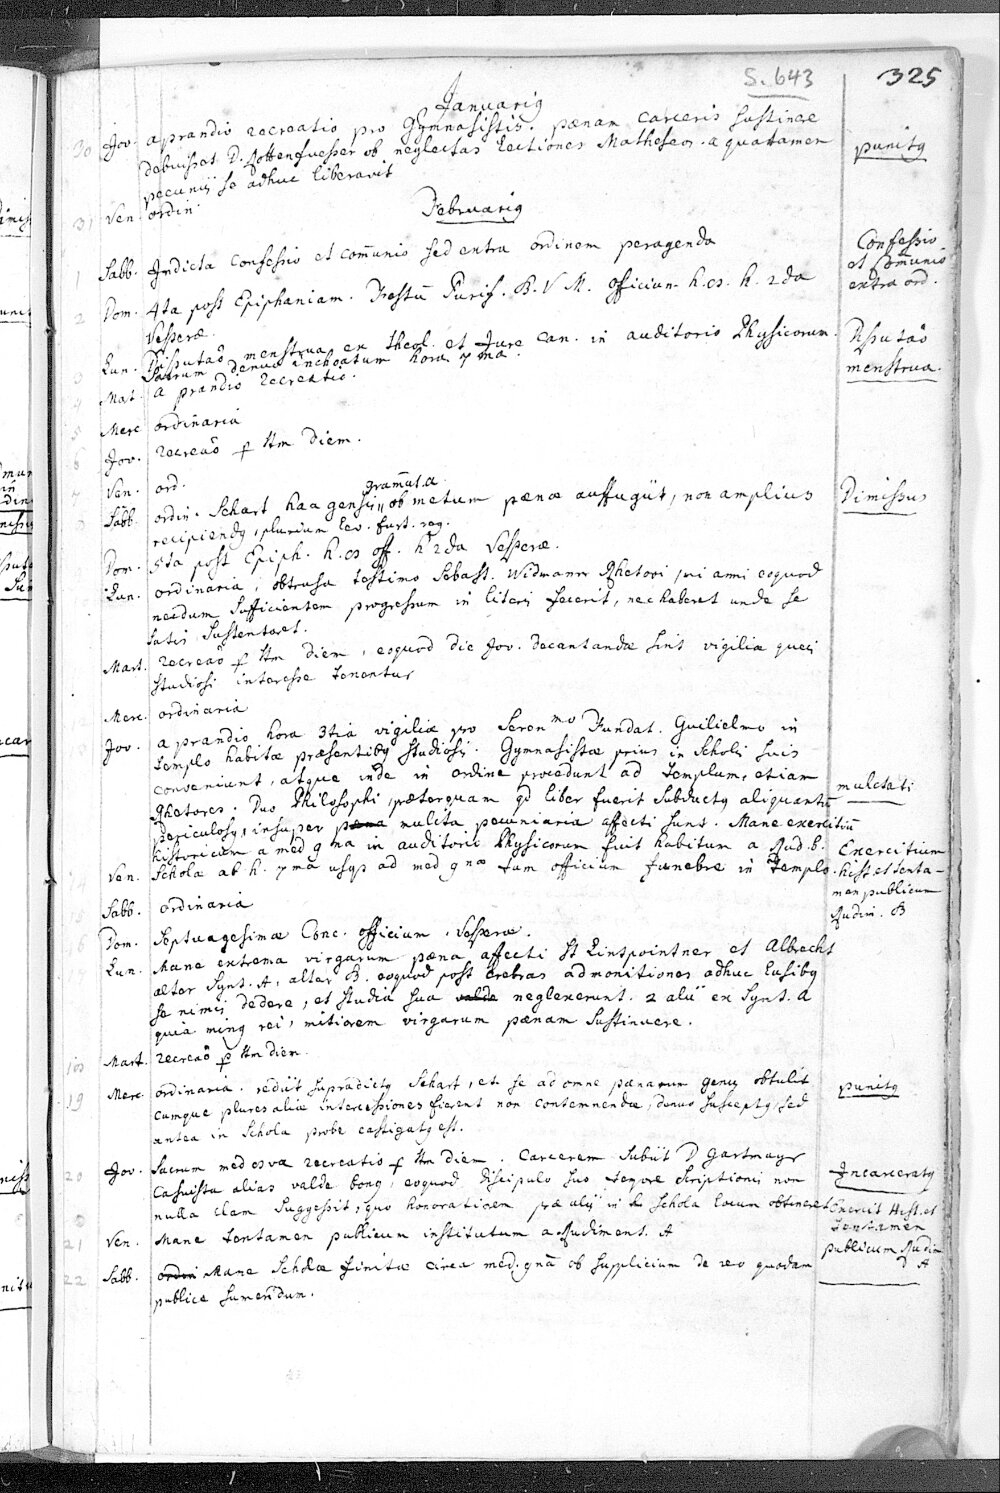 S. 643 325
Januarig
30 Jov. a prandio recreatio pro Gymnasistis. pænam carceris sustinere
debuisset D. Rottenfuesser ob neglectas lectiones Matheseos. a qua tamen punitg
pecuniis se adhuc liberavit
31 Ven. ordin.
Februarig
1 Sabb. Indicta Confessio et Com̄unio sed extra ordinem peragenda Confessio
et Com̄unio
extra ord.
2 Dom. 4ta post Epiphaniam. Festū Purif. B. V. M. officium h. 8. h. 2da
Vesperæ.
3 Lun. Disputaõ menstrua ex theol. et Jure can. in auditorio Physicorum. Disputaõ
Sacrum denuo inchoatum hora 7ma. menstrua.
4 Mart. a prandio recreatio.
5 Merc ordinaria
6 Jov. recreaõ p ttm diem.
7 Ven. ord.
gram̄at. a
Sabb. ordin. Sckart haagensis ob metum pænæ auffugiit, non amplius Dimissus
recipiendg, plurium lev. furt. reg.
Dom. 5ta post Epiph. h. 8 off. h. 2da Vesperæ.
Lun. ordinaria, obtrusa testimo Sebast. Widmann Rhetori, ui anni eoquod
necdum sufficientem progressum in literis fecerit, nec haberet unde se
satis sustentaret.
Mart. recreaõ p ttm diem, eoquod die Jov. decantandæ sint vigiliæ queis
studiosi interesse tenentur
Merc. ordinaria
Jov. a prandio hora 3tia vigiliæ pro Seren mo Fundat. Guilielmo in
templo habitæ præsentibg studiosis. Gymnasistæ prius in scholis suis
conveniunt, atque inde in ordine procedunt ad templum, etiam
Rhetores. Duo Philosophi, præterquam qd liber fuerit subductg aliquantū mulctati
periculosg, insuper pæna mulcta pecuniaria affecti sunt. Mane exercitiū
historicum a med 9na in auditorio Physicorum fuit habitum a Rud. b. Exercitium
Ven. Schola ab h. 7ma usqs ad med 9næ tum officium funebre in Templo. hist. et tenta-
men publicum
Rudim. B
Sabb. ordinaria
Dom. Septuagesimæ Conc. officium, Vesperæ.
Lun. Mane extrema virgarum pæna affecti st Lintpointner et Albrecht
alter Synt. A, alter B. eoquod post crebras admonitiones adhuc lusibg
se nimis dedere, et studia sua valde neglexerunt. 2 alii ex Synt. a
quia ming rei, mitiorem virgarum pænam sustinuere.
Mart. recreaõ p ttm diem.
19 Merc. ordinaria. rediit supradictg Sckart, et se ad omne pænarum geng obtulit punitg
cumque plures aliæ intercessiones fierent non contemnendæ, denuo susceptg, sed
antea in schola probe castigatg est.
20 Jov. Sacrum med 8va recreatio p ttm diem. Carcerem subiit D Gartmayr Incarceratg
Casuista alias valde bong, eoquod discipulo suo tenore scriptionis non
nulla clam suggessit, quo honoratiorem præ aliis in schola locum obtineret Exercit Hist. et
21 Ven. Mane tentamen publicum institutum a Rudiment. A tentamen
publicum Rudim
A
22 Sabb. ordin Mane Scholæ finitæ circa med. 9nā ob supplicium de reo quodam
publice sumendum.